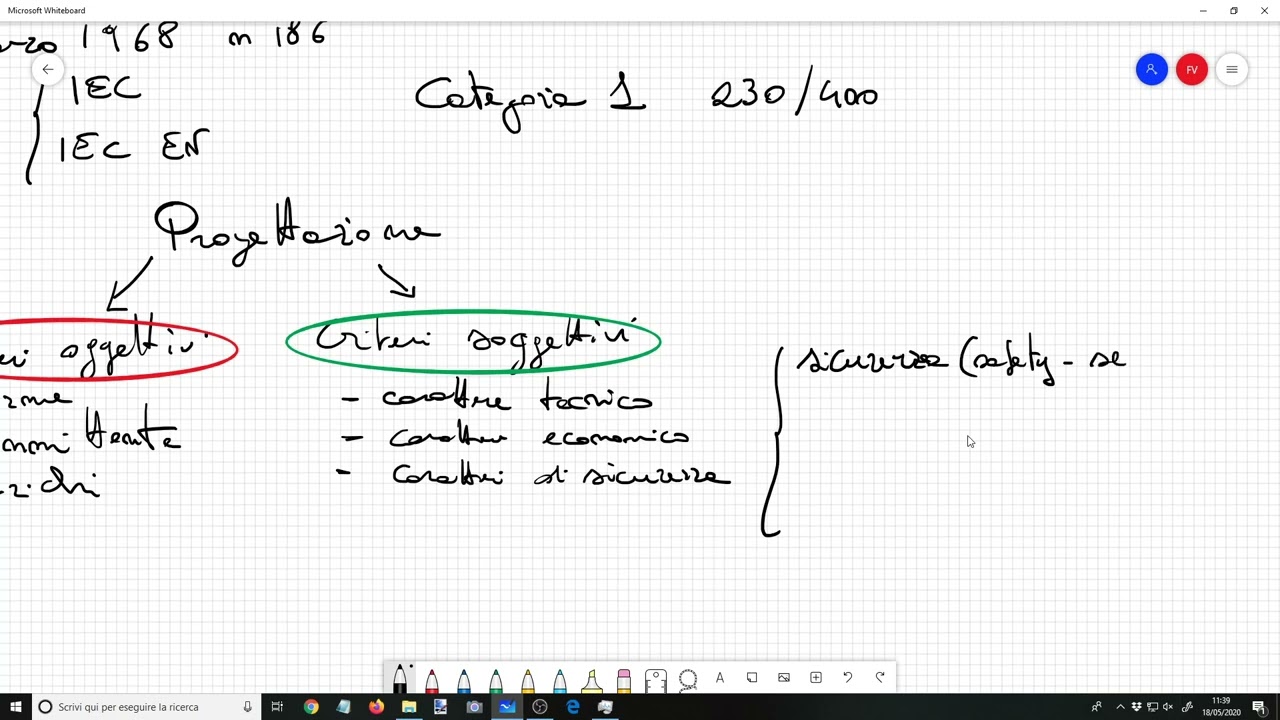 Microsoft Whiteboard
1968 n 186
IEC
IEC EN
Categoria 1 230/400
FV
Progettazione
oggettivi
Criteri soggettivi
- carattere tecnico
- carattere economico
- caratteri di sicurezza
sicurezza (safety - se
Scrivi qui per eseguire la ricerca
11:39
18/05/2020